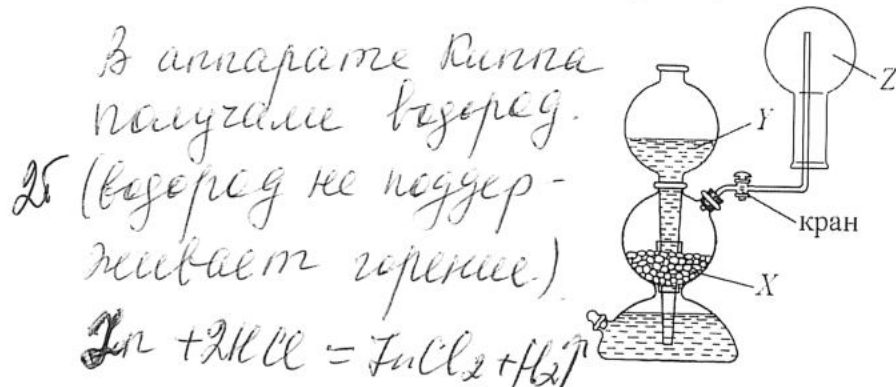 В аппарате Киппа
получали водород.
2б (водород не поддер-
живает горение.)
Zn + 2HCl = ZnCl₂ + H₂↑
Z
Y
кран
X